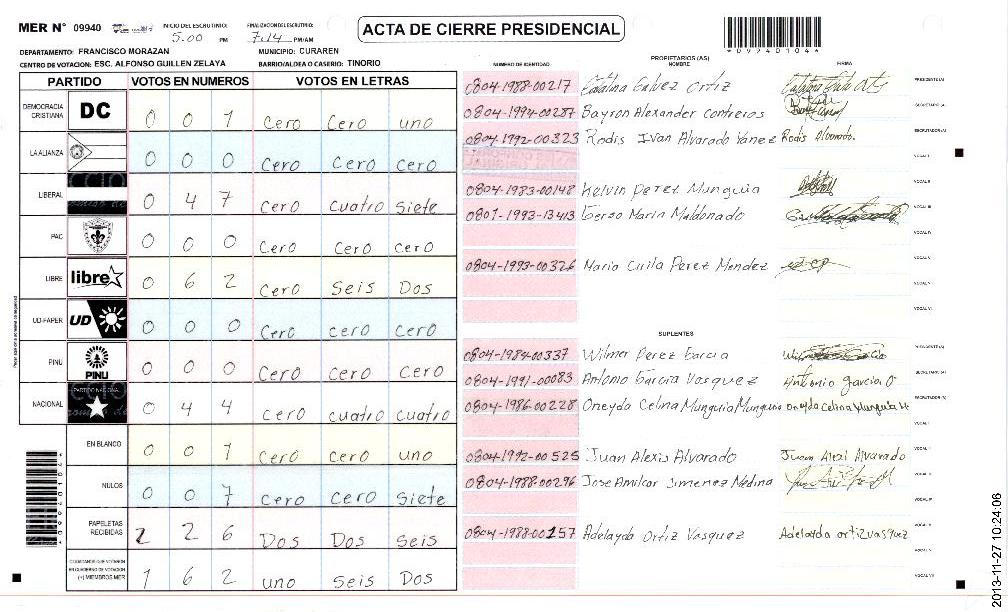 MER N° 09940 INICIO DEL ESCRUTINIO: 5.00 PM FINALIZACION DEL ESCRUTINIO: 7:14 PM/AM
ACTA DE CIERRE PRESIDENCIAL
*09940104*
DEPARTAMENTO: FRANCISCO MORAZAN MUNICIPIO: CURAREN
CENTRO DE VOTACION: ESC. ALFONSO GUILLEN ZELAYA BARRIO/ALDEA O CASERIO: TINORIO
PARTIDO VOTOS EN NUMEROS VOTOS EN LETRAS
DEMOCRACIA CRISTIANA DC 0 0 1 Cero Cero uno
LA ALIANZA 0 0 0 Cero Cero Cero
LIBERAL 0 4 7 Cero Cuatro Siete
PAC 0 0 0 Cero Cero Cero
LIBRE libre 0 6 2 Cero Seis Dos
UD-FAPER UD 0 0 0 Cero Cero Cero
PINU PINU 0 0 0 Cero Cero Cero
NACIONAL 0 4 4 Cero Cuatro Cuatro
EN BLANCO 0 0 1 Cero Cero uno
NULOS 0 0 7 Cero Cero Siete
PAPELETAS RECIBIDAS 2 2 6 Dos Dos Seis
CIUDADANOS QUE VOTARON EN CUADERNO DE VOTACION (+) MIEMBROS MER 1 6 2 uno Seis Dos
NUMERO DE IDENTIDAD PROPIETARIOS (AS) NOMBRE FIRMA
0804-1988-00217 Catalina Galvez Ortiz PRESIDENTE(A)
0804-1994-00287 Bayron Alexander Contreros SECRETARIO(A)
0804-1992-00323 Rodis Ivan Alvarado Yanez Rodis Alvarado. ESCRUTADOR(A)
VOCAL I
0804-1983-00148 Kelvin Perez Munguia VOCAL II
0801-1993-13413 Gerso Maria Maldonado VOCAL III
VOCAL IV
0804-1993-00326 Maria Cuila Perez Mendez VOCAL V
VOCAL VI
SUPLENTES
0804-1984-00337 Wilmer Perez Garcia PRESIDENTE(A)
0804-1991-00083 Antonio Garcia Vasquez Antonio garcia SECRETARIO(A)
0804-1986-00228 Oneyda Celina Munguia Munguia Oneyda Celina Munguia M ESCRUTADOR(A)
VOCAL I
0804-1992-00525 Juan Alexis Alvarado Juan Alexi Alvarado
0804-1988-00296 Jose Amilcar Jimenez Medina
VOCAL IV
0804-1988-00157 Adelayda Ortiz Vasquez Adelayda ortiz vasquez
VOCAL VII
2013-11-27 10:24:06